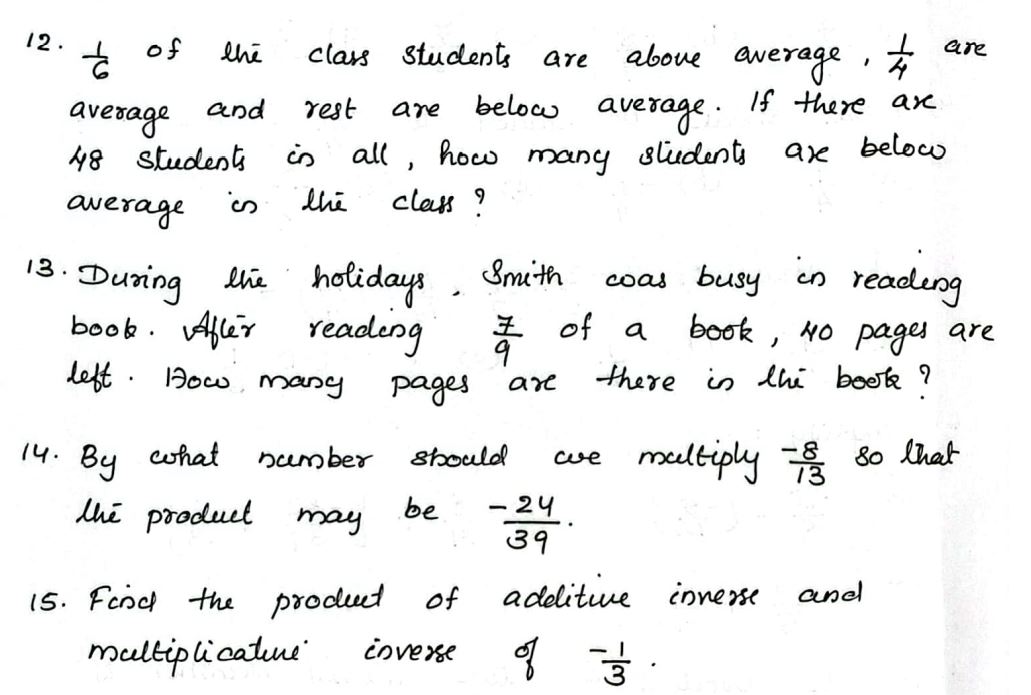 12. 1/6 of the class students are above average, 1/4 are
average and rest are below average. If there are
48 students in all, how many students are below
average in the class?
13. During the holidays, Smith was busy in reading
book. After reading 7/9 of a book, 40 pages are
left. How many pages are there in the book?
14. By what number should we multiply -8/13 so that
the product may be -24/39.
15. Find the product of additive inverse and
multiplicative inverse of -1/3.